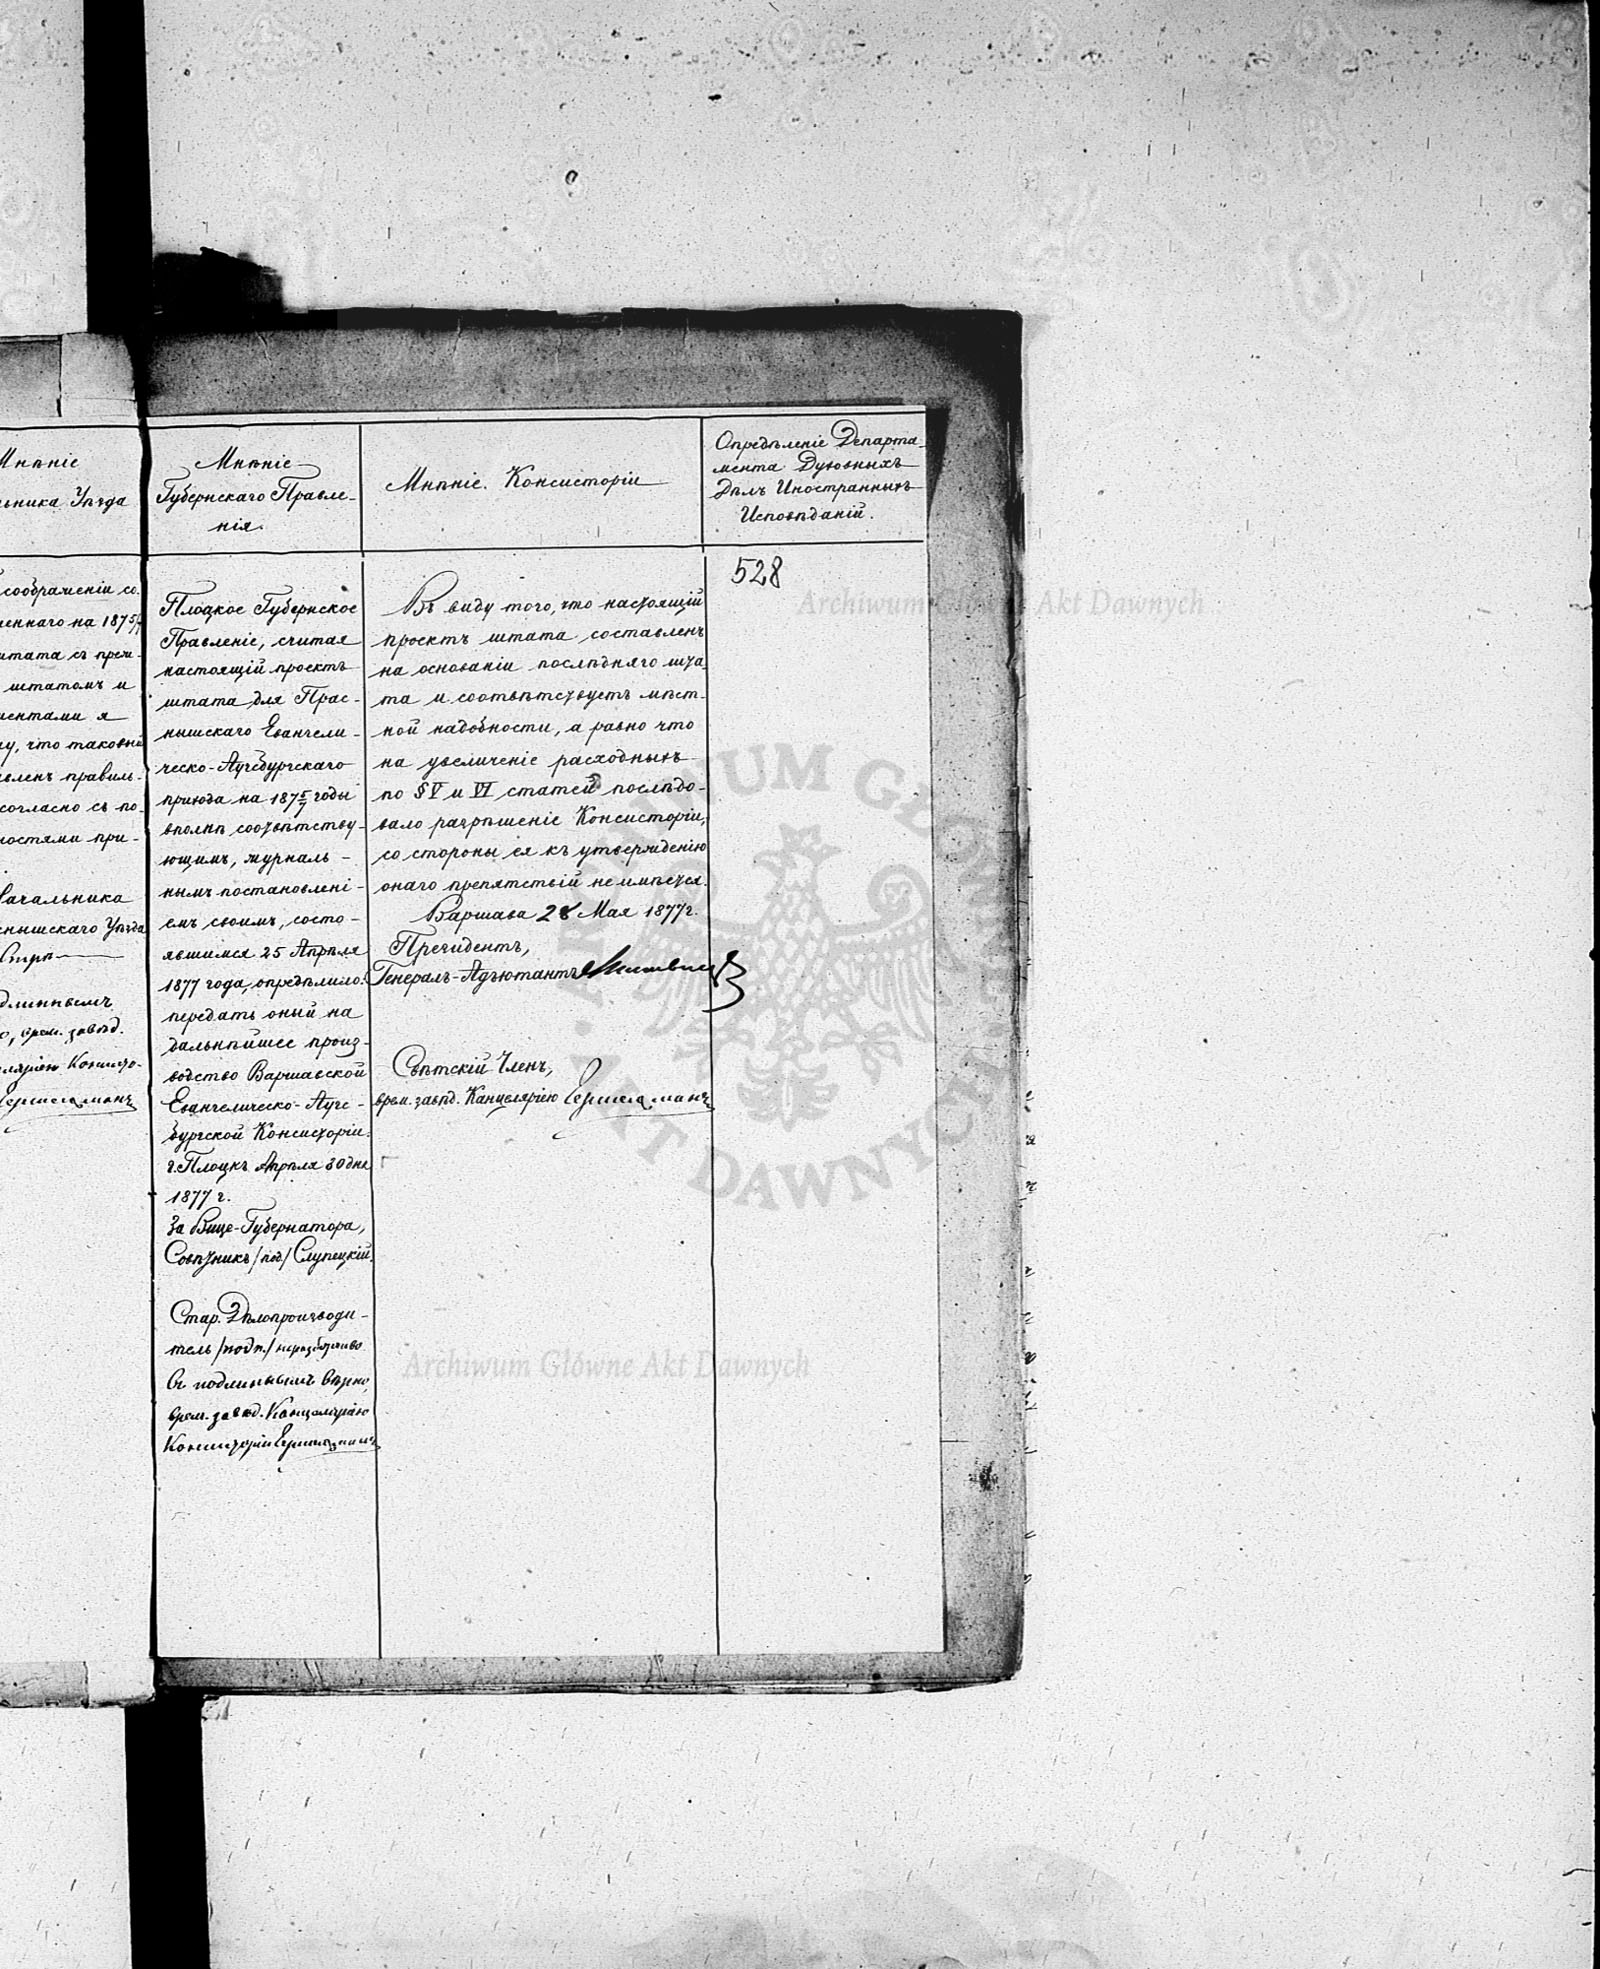 Мнѣніе
ьника Уѣзда
соображеніи со
леннаго на 1875/7
штата съ преж-
штатомъ и
ментами я
у, что таковый
вленъ правиль-
согласно съ по-
ностями при-
Начальника
снышскаго Уѣзда
длиннымъ
о, врем. завѣд.
Мнѣніе
Губернскаго Правле-
нія.
Плоцкое Губернское
Правленіе, считая
настоящій проектъ
штата для Прас-
нышскаго Евангели-
ческо-Аугсбургскаго
прихода на 1875/7 годы
вполнѣ соотвѣтству-
ющимъ, журналь-
нымъ постановлені-
емъ своимъ, состо-
явшимся 25 Апрѣля
1877 года, опредѣлило:
передать оный на
дальнѣйшее произ-
водство Варшавской
Евангелическо-Аугс-
бургской Консисторіи.
г. Плоцкъ Апрѣля 30 дня
1877 г.
За Вице-Губернатора,
Совѣтникъ /под/ Слупецкій.
Стар. Дѣлопроизводи-
тель /подп./ неразборчиво
Съ подлиннымъ вѣрно,
врем. завѣд. Канцеляріею
Консисторіи
Мнѣніе Консисторіи
Въ виду того, что настоящій
проектъ штата составленъ
на основаніи послѣдняго шта-
та и соотвѣтствуетъ мѣст-
ной надобности, а равно что
на увеличеніе расходныхъ
по § V и VI статей послѣдо-
вало разрѣшеніе Консисторіи,
со стороны ея къ утвержденію
онаго препятствій не имѣется.
Варшава 28 Мая 1877 г.
Президентъ,
Генералъ-Адъютантъ
Свѣтскій Членъ,
врем. завѣд. Канцеляріею
Опредѣленіе Департа-
мента Духовныхъ
Дѣлъ Иностранныхъ
Исповѣданій.
528
Archiwum Główne Akt Dawnych
ARCHIWUM GŁÓWNE
AKT DAWNYCH
Archiwum Główne Akt Dawnych